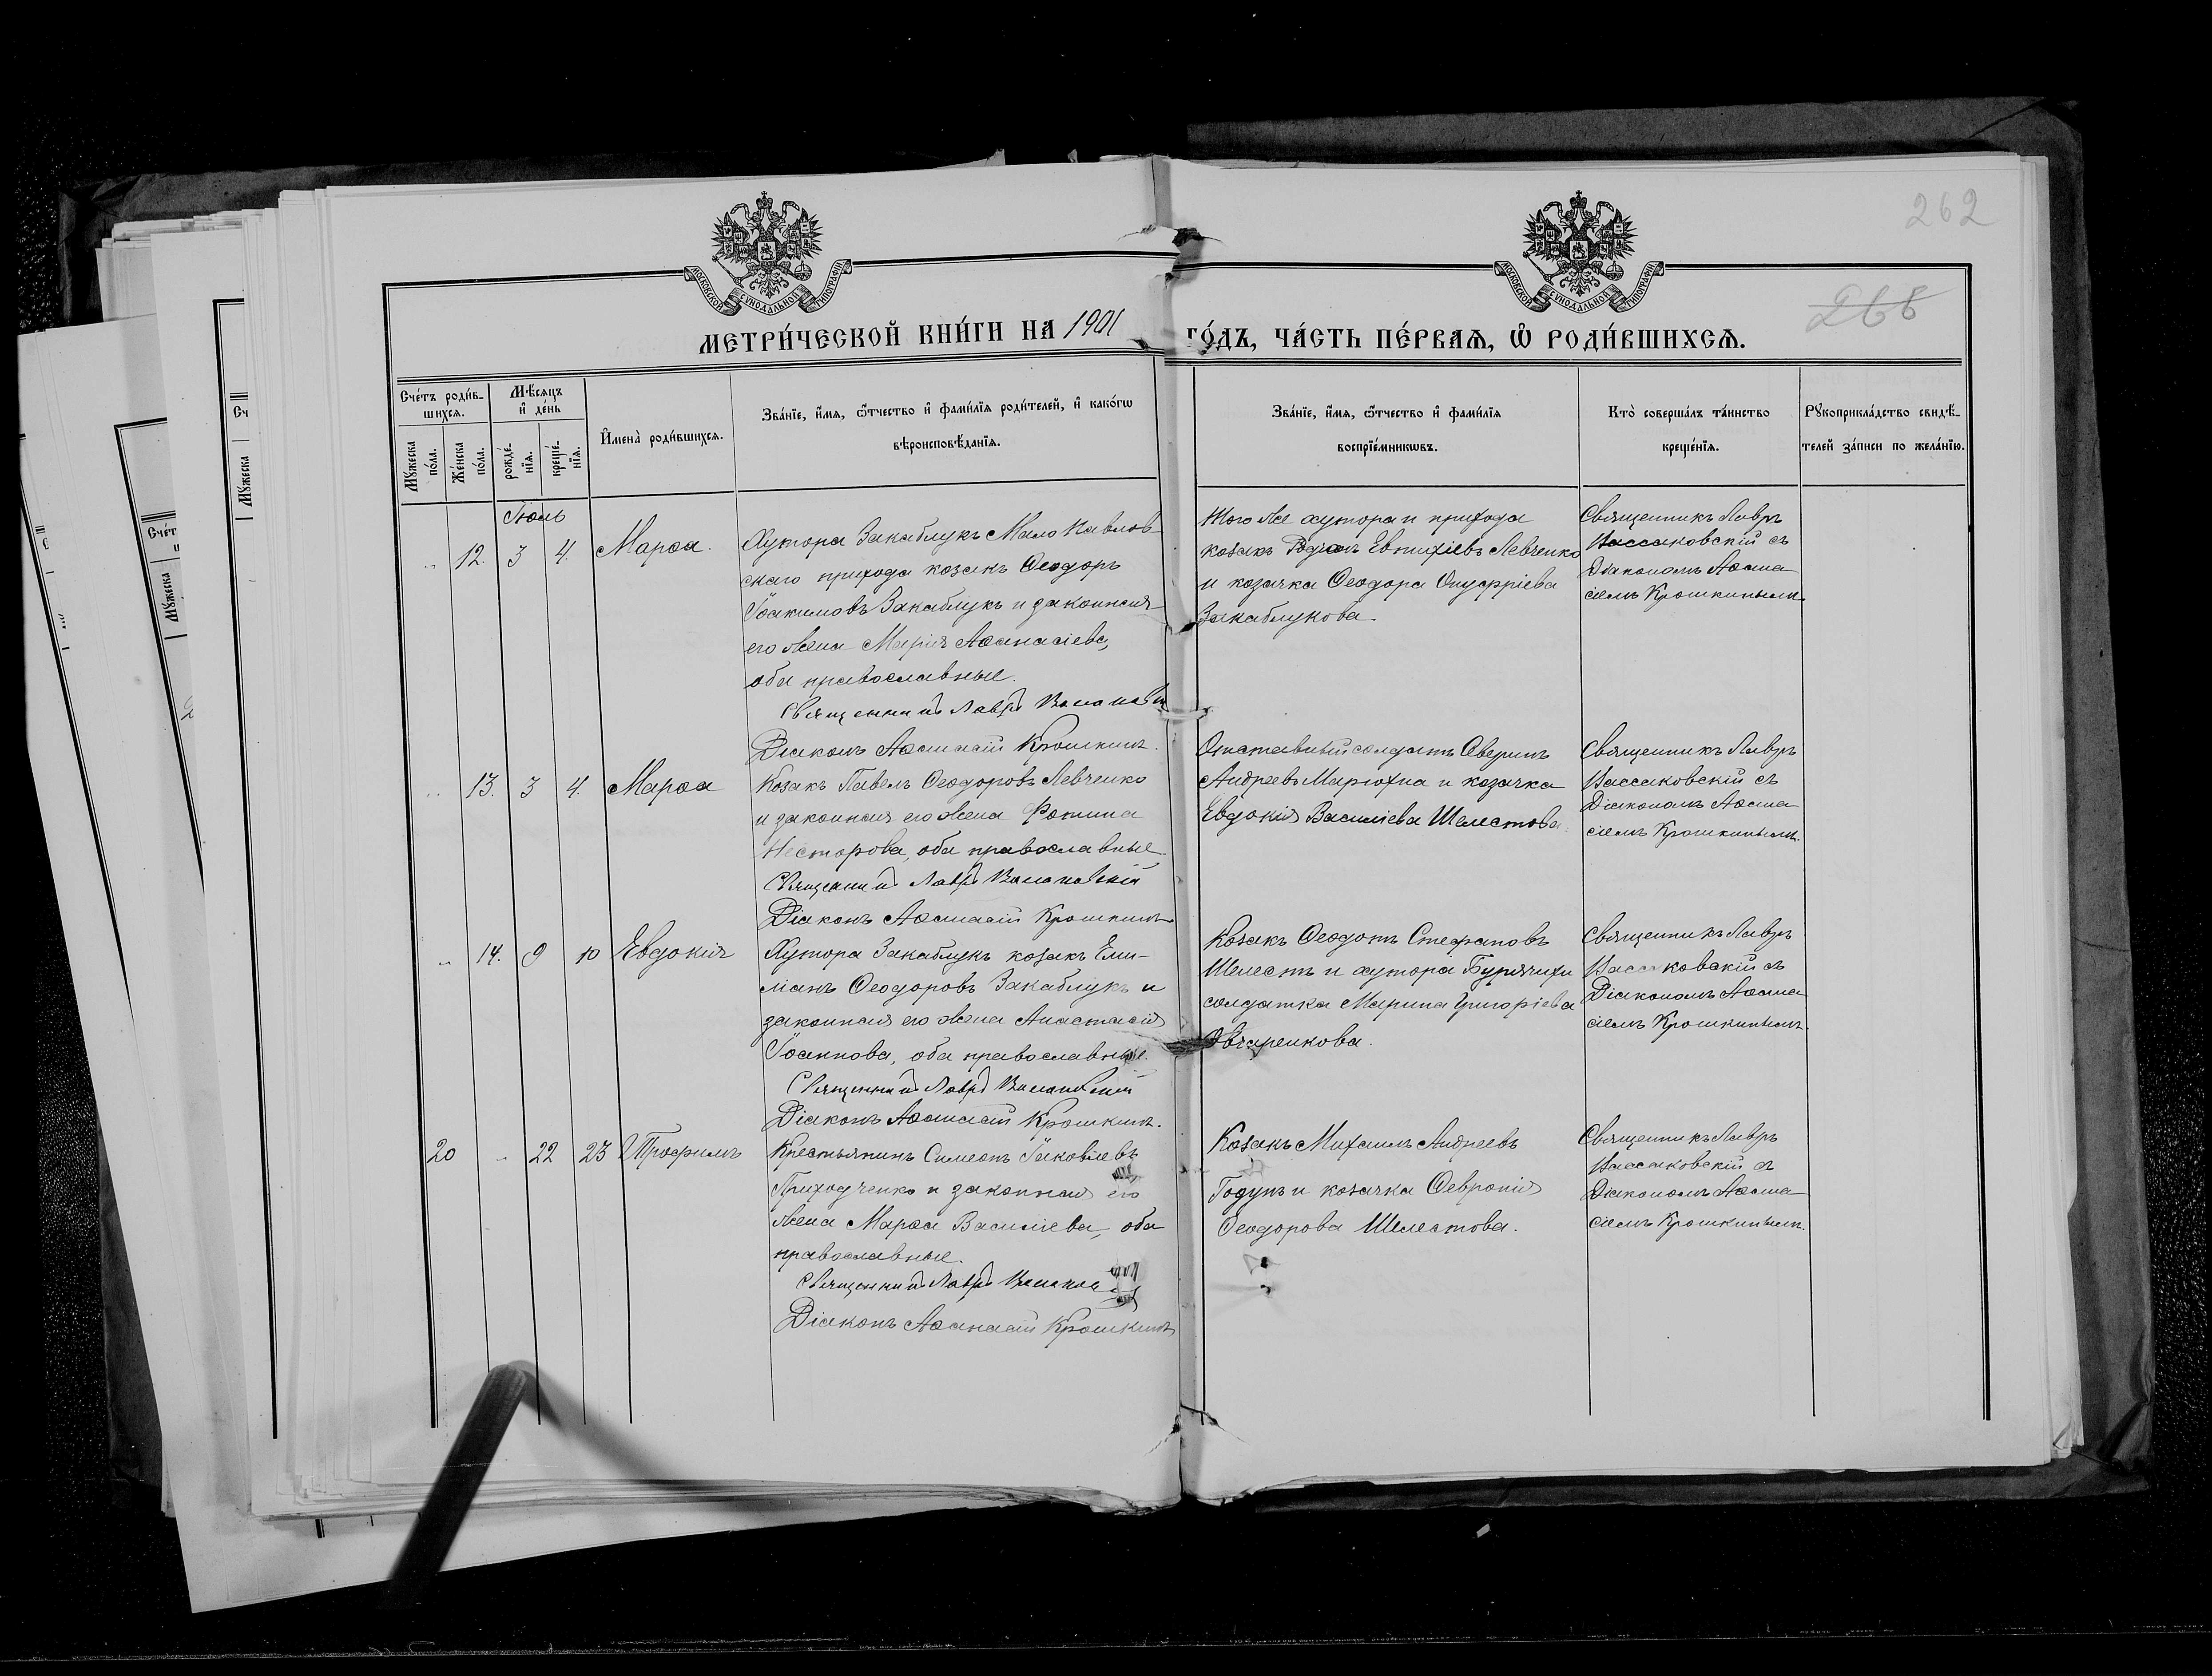 262
266
МЕТРИ́ЧЕСКОЙ КНИ́ГИ НА 1901 ГО́ДЪ, ЧА́СТЬ ПЕ́РВАѦ, Ѡ҆ РОДИ́ВШИХСѦ.
Сче́тъ роди́в-
шихсѧ.
Мѣ́сяцъ
и҆ де́нь
Мꙋжеска по́ла.
Же́нска по́ла.
рожде́-
нїѧ.
креще́-
нїѧ.
И҆мена̀ роди́вшихсѧ.
Зва́нїе, и҆́мѧ, ѻ҆́тчество и҆ фами́лїѧ роди́телей, и҆ како́гѡ
вѣроисповѣ́данїѧ.
Зва́нїе, и҆́мѧ, ѻ҆́тчество и҆ фами́лїѧ
воспрїе́мникѡвъ.
Кто̀ соверша́лъ та́инство
креще́нїѧ.
Рꙋкоприкла́дство свидѣ́-
телей за́писи по жела́нїю.
Іюль
12. 3 4. Марѳа.
Хутора Закаблукъ Мало Павлов-
скаго прихода козакъ Ѳеодоръ
Іоакимовъ Закаблукъ и законная
его жена Марія Аѳанасіева,
оба православные.
Священникъ Лавръ
Діаконъ Аѳанасій Крошкинъ.
Того же хутора и прихода
козакъ Родіонъ Евтихіевъ Левченко
и козачка Ѳеодора Онуфріева
Закаблукова.
Священникъ Лавръ
Вассаковскій съ
Діакономъ Аѳана
сіемъ Крошкинымъ.
13. 3 4. Марѳа
Козакъ Павелъ Ѳеодоровъ Левченко
и законная его жена Фотина
Несторова, оба православные.
Священникъ Лавръ
Діаконъ Аѳанасій Крошкинъ
Отставный солдатъ Северинъ
Андреевъ Марюхна и козачка
Евдокія Василіева Шелестова.
Священникъ Лавръ
Вассаковскій съ
Діакономъ Аѳана
сіемъ Крошкинымъ.
14. 9 10 Евдокія
Хутора Закаблукъ козакъ Еми-
ліанъ Ѳеодоровъ Закаблукъ и
законная его жена Анастасія
Іоаннова, оба православные.
Священникъ Лавръ
Діаконъ Аѳанасій Крошкинъ.
Козакъ Ѳеодотъ Стефановъ
Шелестъ и хутора Бурячихи
солдатка Марина Григоріева
Овчаренкова.
Священникъ Лавръ
Вассаковскій съ
Діакономъ Аѳана
сіемъ Крошкинымъ.
20 22 23 Трофимъ
Крестьянинъ Симеонъ Іаковлевъ
Приходченко и законная его
жена Марѳа Василіева, оба
православные.
Священникъ Лавръ
Діаконъ Аѳанасій Крошкинъ
Козакъ Михаилъ Андреевъ
Годунъ и козачка Ѳевронія
Ѳеодорова Шелестова.
Священникъ Лавръ
Вассаковскій съ
Діакономъ Аѳана
сіемъ Крошкинымъ.